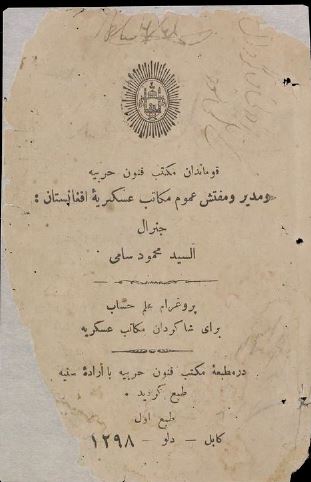 قوماندان مكتب فنون حربيه
ومدير ومفتش عموم مكاتب عسكرية افغانستان :
جنرال
السيد محمود سامی
پروغرام علم حساب
برای شاكردان مكاتب عسكريه
درمطبعة مكتب فنون حربيه با ارادة سنيه
طبع كرديد •
طبع اول
كابل – دلو – ١٢٩٨